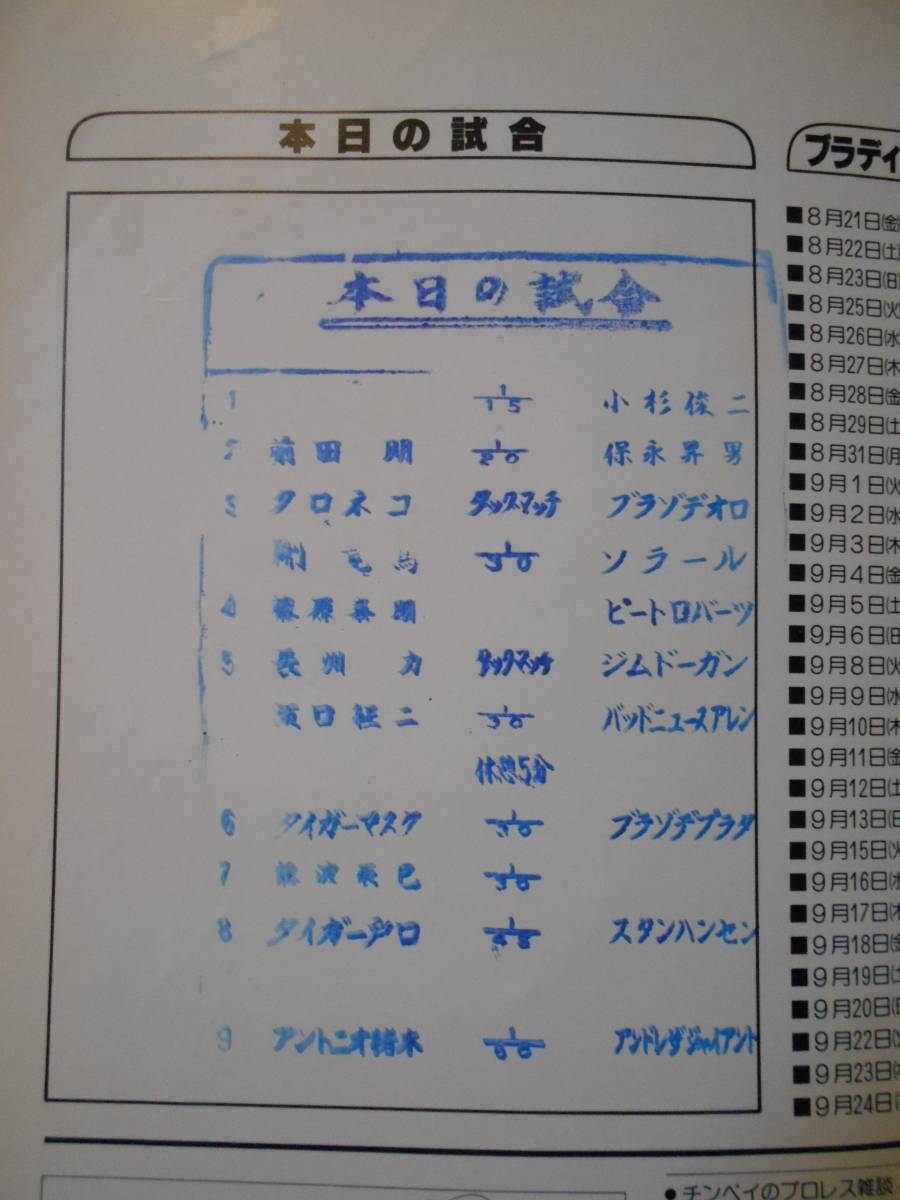 本日の試合
本日の試合
1 1/15 小杉俊二
2 前田 明 1/20 保永昇男
3 クロネコ タックマッチ ブラゾデオロ
剛 竜馬 1/30 ソラール
4 藤原喜明 ピートロバーツ
5 長州 力 タックマッチ ジムドーガン
坂口征二 1/30 バッドニュースアレン
休憩5分
6 タイガーマスク 1/30 ブラゾデプラタ
7 藤波辰巳 1/30
8 タイガー戸口 1/45 スタンハンセン
9 アントニオ猪木 1/60 アンドレザジャイアント
ブラディ
■8月21日㈮
■8月22日㈯
■8月23日㈰
■8月25日㈫
■8月26日㈬
■8月27日㈭
■8月28日㈮
■8月29日㈯
■8月31日㈪
■9月1日㈫
■9月2日㈬
■9月3日㈭
■9月4日㈮
■9月5日㈯
■9月6日㈰
■9月8日㈫
■9月9日㈬
■9月10日㈭
■9月11日㈮
■9月12日㈯
■9月13日㈰
■9月15日㈫
■9月16日㈬
■9月17日㈭
■9月18日㈮
■9月19日㈯
■9月20日㈰
■9月22日㈫
■9月23日㈬
■9月24日
●チンペイのプロレス雑談